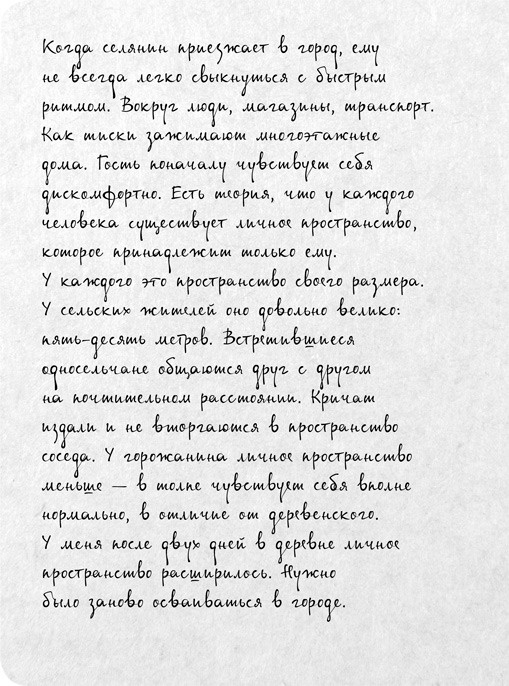 Когда селянин приезжает в город, ему
не всегда легко свыкнуться с быстрым
ритмом. Вокруг люди, магазины, транспорт.
Как тиски зажимают многоэтажные
дома. Гость поначалу чувствует себя
дискомфортно. Есть теория, что у каждого
человека существует личное пространство,
которое принадлежит только ему.
У каждого это пространство своего размера.
У сельских жителей оно довольно велико:
пять-десять метров. Встретившиеся
односельчане общаются друг с другом
на почтительном расстоянии. Кричат
издали и не вторгаются в пространство
соседа. У горожанина личное пространство
меньше — в толпе чувствует себя вполне
нормально, в отличие от деревенского.
У меня после двух дней в деревне личное
пространство расширилось. Нужно
было заново осваиваться в городе.